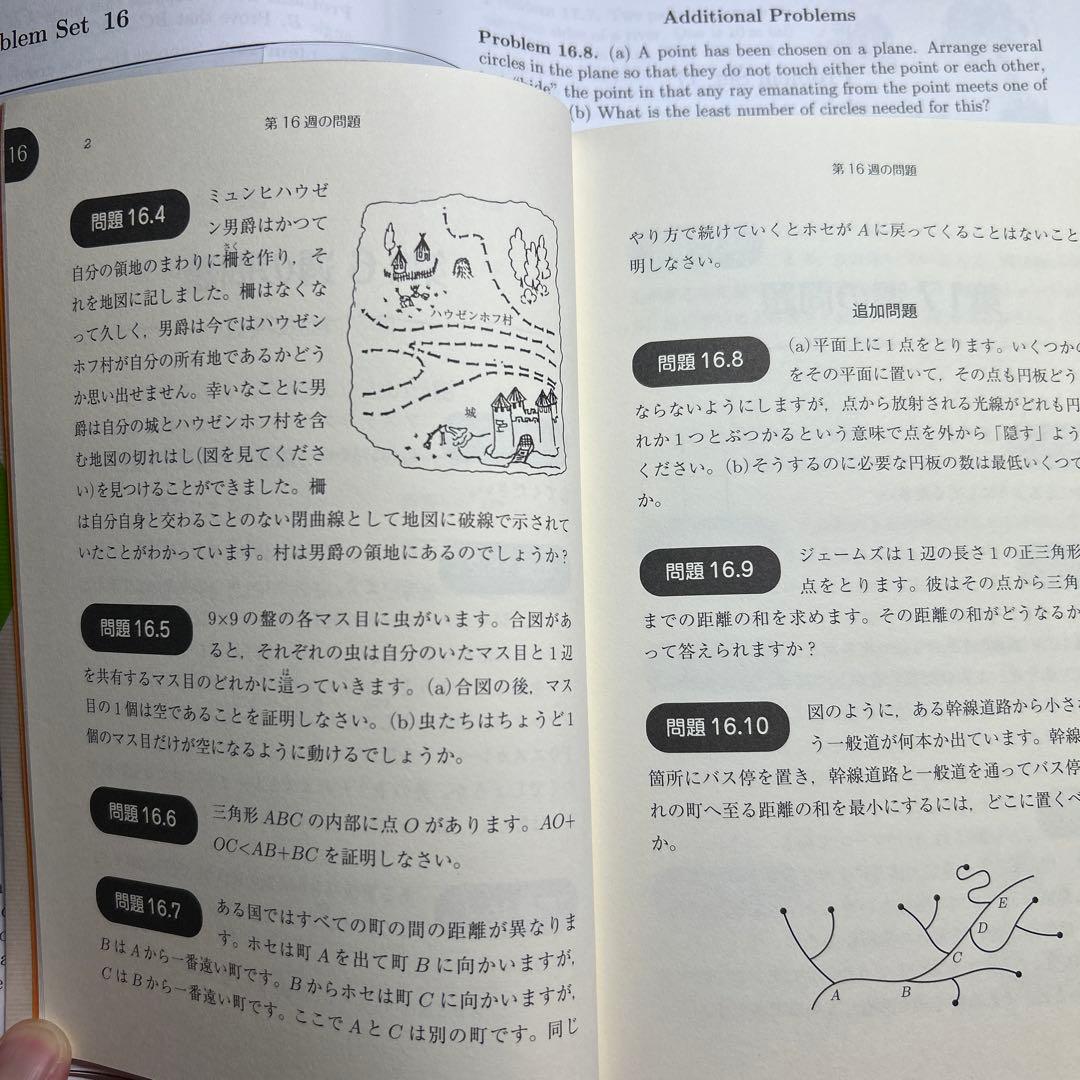 blem Set 16
Additional Problems
Problem 16.8. (a) A point has been chosen on a plane. Arrange several
circles in the plane so that they do not touch either the point or each other,
the point in that any ray emanating from the point meets one of
(b) What is the least number of circles needed for this?
16
2
第16週の問題
問題16.4
ミュンヒハウゼ
ン男爵はかつて
自分の領地のまわりに柵を作り，そ
さく
れを地図に記しました。柵はなくな
って久しく，男爵は今ではハウゼン
ホフ村が自分の所有地であるかどう
か思い出せません。幸いなことに男
爵は自分の城とハウゼンホフ村を含
む地図の切れはし(図を見てくださ
い)を見つけることができました。柵
は自分自身と交わることのない閉曲線として地図に破線で示されて
いたことがわかっています。村は男爵の領地にあるのでしょうか?
ハウゼンホフ村
城
問題16.5
9×9の盤の各マス目に虫がいます。合図があ
ると，それぞれの虫は自分のいたマス目と1辺
を共有するマス目のどれかに這っていきます。(a)合図の後，マス
は
目の1個は空であることを証明しなさい。(b)虫たちはちょうど1
個のマス目だけが空になるように動けるでしょうか。
問題16.6
三角形 ABC の内部に点 O があります。AO+
OC<AB+BC を証明しなさい。
問題16.7
ある国ではすべての町の間の距離が異なりま
す。ホセは町 A を出て町 B に向かいますが，
B は A から一番遠い町です。B からホセは町 C に向かいますが，
C は B から一番遠い町です。ここで A と C は別の町です。同じ
第16週の問題
やり方で続けていくとホセが A に戻ってくることはないこと
明しなさい。
追加問題
問題16.8
(a)平面上に1点をとります。いくつか
をその平面に置いて，その点も円板どう
ならないようにしますが，点から放射される光線がどれも円
れか1つとぶつかるという意味で点を外から「隠す」よう
ください。(b)そうするのに必要な円板の数は最低いくつで
か。
問題16.9
ジェームズは1辺の長さ1の正三角形
点をとります。彼はその点から三角
までの距離の和を求めます。その距離の和がどうなるか
って答えられますか?
問題16.10
図のように，ある幹線道路から小さ
う一般道が何本か出ています。幹線
箇所にバス停を置き，幹線道路と一般道を通ってバス停
れの町へ至る距離の和を最小にするには，どこに置くべ
か。
E
D
C
A
B